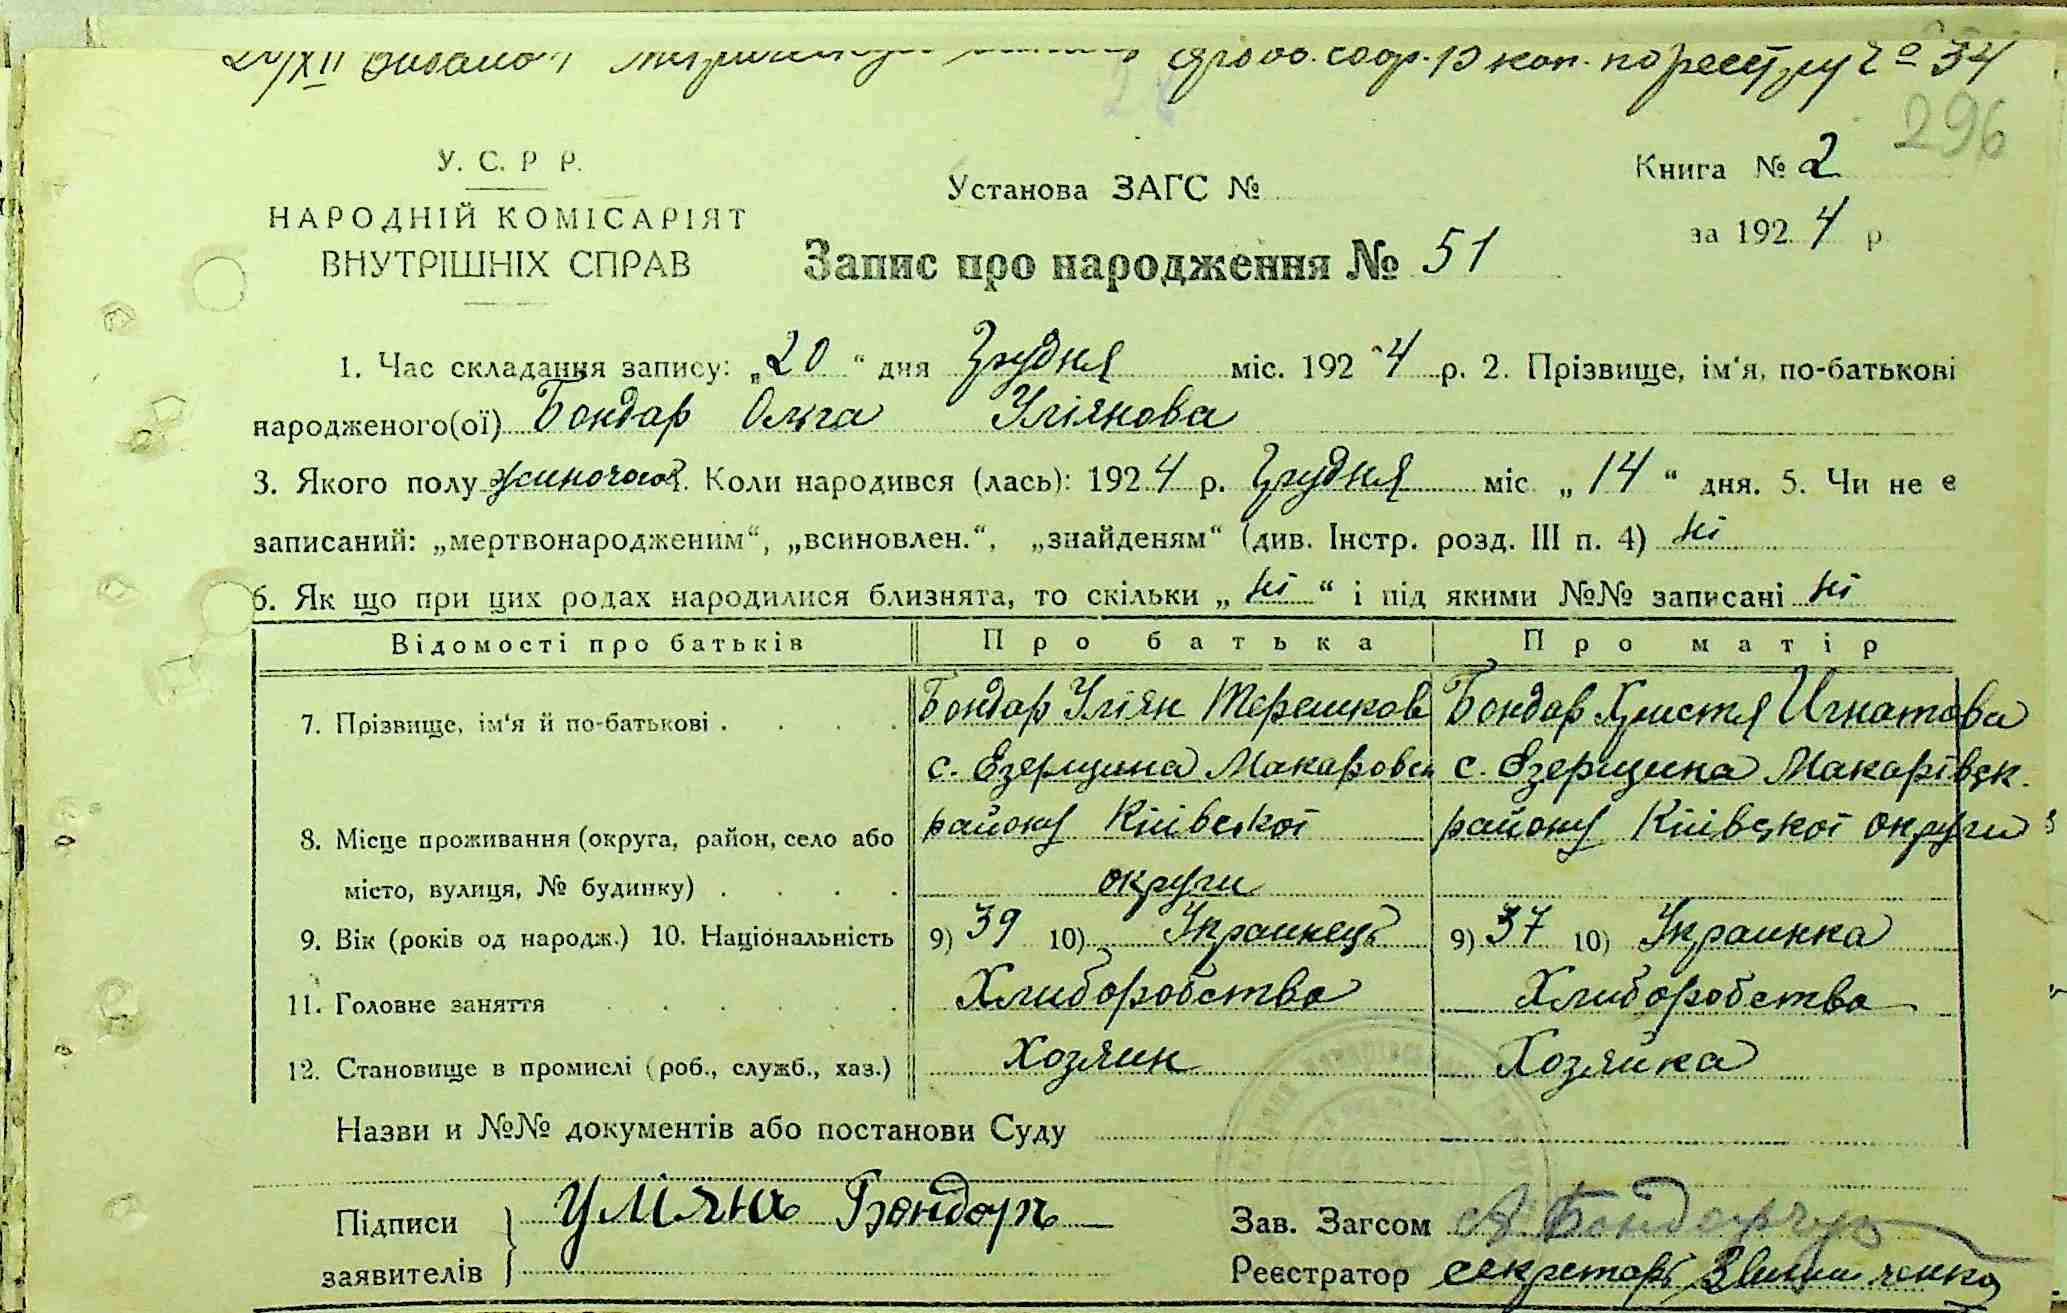 20/XII сбор. 10 коп. по реестру № 34
296
У. С. Р Р.
НАРОДНІЙ КОМІСАРІЯТ
ВНУТРІШНІХ СПРАВ
Установа ЗАГС №
Книга № 2
за 1924 р
Запис про народження № 51
1. Час складання запису: „20“ дня Грудня міс. 1924 р. 2. Прізвище, ім'я, по-батькові
народженого(ої) Бондар Ольга Улянова
3. Якого полу жиночого. Коли народився (лась): 1924 р. Грудня міс „14“ дня. 5. Чи не є
записаний: „мертвонародженим“, „всиновлен.“, „знайденям“ (див. Інстр. розд. III п. 4) ні
6. Як що при цих родах народилися близнята, то скільки „ні“ і під якими №№ записані ні
Відомості про батьків Про батька Про матір
7. Прізвище, ім'я й по-батькові Бондар Улян Терешков Бондар Христя Игнатова
с. Езерщина Макаровск с. Езерщина Макарівск.
8. Місце проживання (округа, район, село або району Київської району Київської округи
місто, вулиця, № будинку) округи
9. Вік (років од народж.) 10. Національність 9) 39 10) Украинець 9) 37 10) Украинка
11. Головне заняття Хлиборобство Хлиборобство
12. Становище в промислі (роб., служб., хаз.) Хозяин Хозяйка
Назви и №№ документів або постанови Суду
Підписи Уляна Бондарь Зав. Загсом Бондарчук
заявителів Реєстратор секретарь